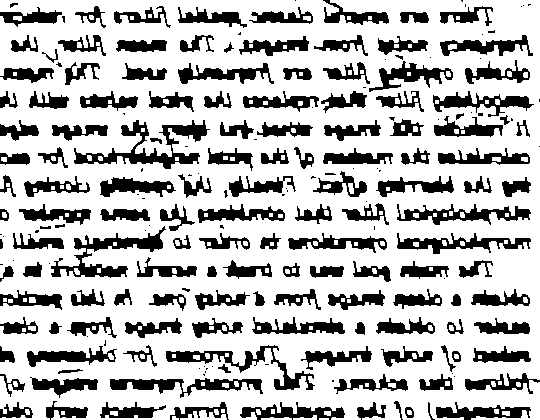 There are several classic spatial filters for reducin
frequency noise from images. The mean filter, the
closing opening filter are frequently used. The mean
smoothing filter that replaces the pixel values with th
It reduces the image noise but blurs the image edge
calculates the median of the pixel neighborhood for eac
ing the blurring effect. Finally, the opening closing fi
morphological filter that combines the same number o
morphological operations in order to eliminate small
The main goal was to train a neural network in a s
obtain a clean image from a noisy one. In this particu
easier to obtain a simulated noisy image from a clea
subset of noisy images. The process for obtaining n
following this scheme. This process requires images of
of the acquisition forms, which were